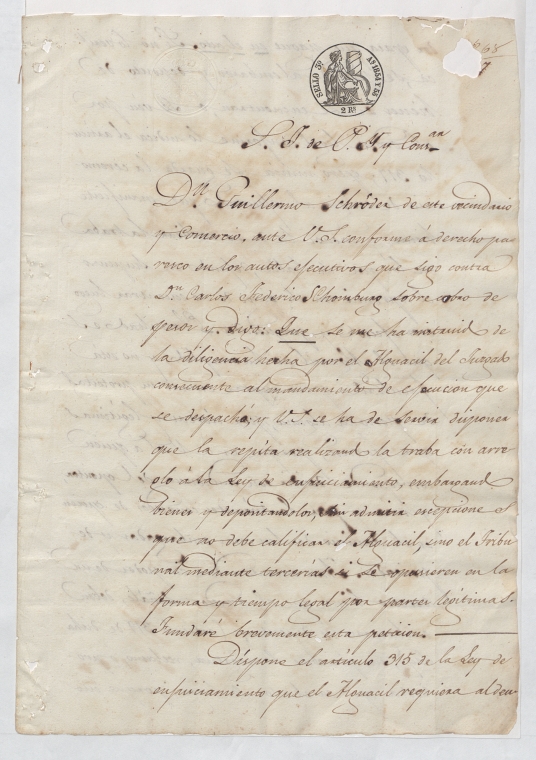 68
7
SELLO 3º AS 1854 Y 55
2 Rs
S. J. de P. M y Cons.an
Dn. Guillermo Schröder de este vecindario
y Comercio, ante V. S. conforme á derecho pa-
rezco en los autos ejecutivos que sigo contra
Dn. Carlos Federico Schomburg sobre cobro de
pesos y digo: Que se me ha instruid de
la diligencia hecha por el Alguacil del Juzgad
consecuente al mandamiento de ejecucion que
se despachó; y V. S. se ha de servir disponer
que la repita realizand la traba con arre-
glo á la Ley de enjuiciamiento, embargand
bienes y depositandolos, sin admitir excepciones
que no debe calificar el Alguacil, sino el Tribu-
nal mediante tercerías si se opusieren en la
forma y tiempo legal por partes legítimas.
Fundaré brevemente esta peticion.
Dispone el artículo 315 de la Ley de
enjuiciamiento que el Alguacil requiera al deu-